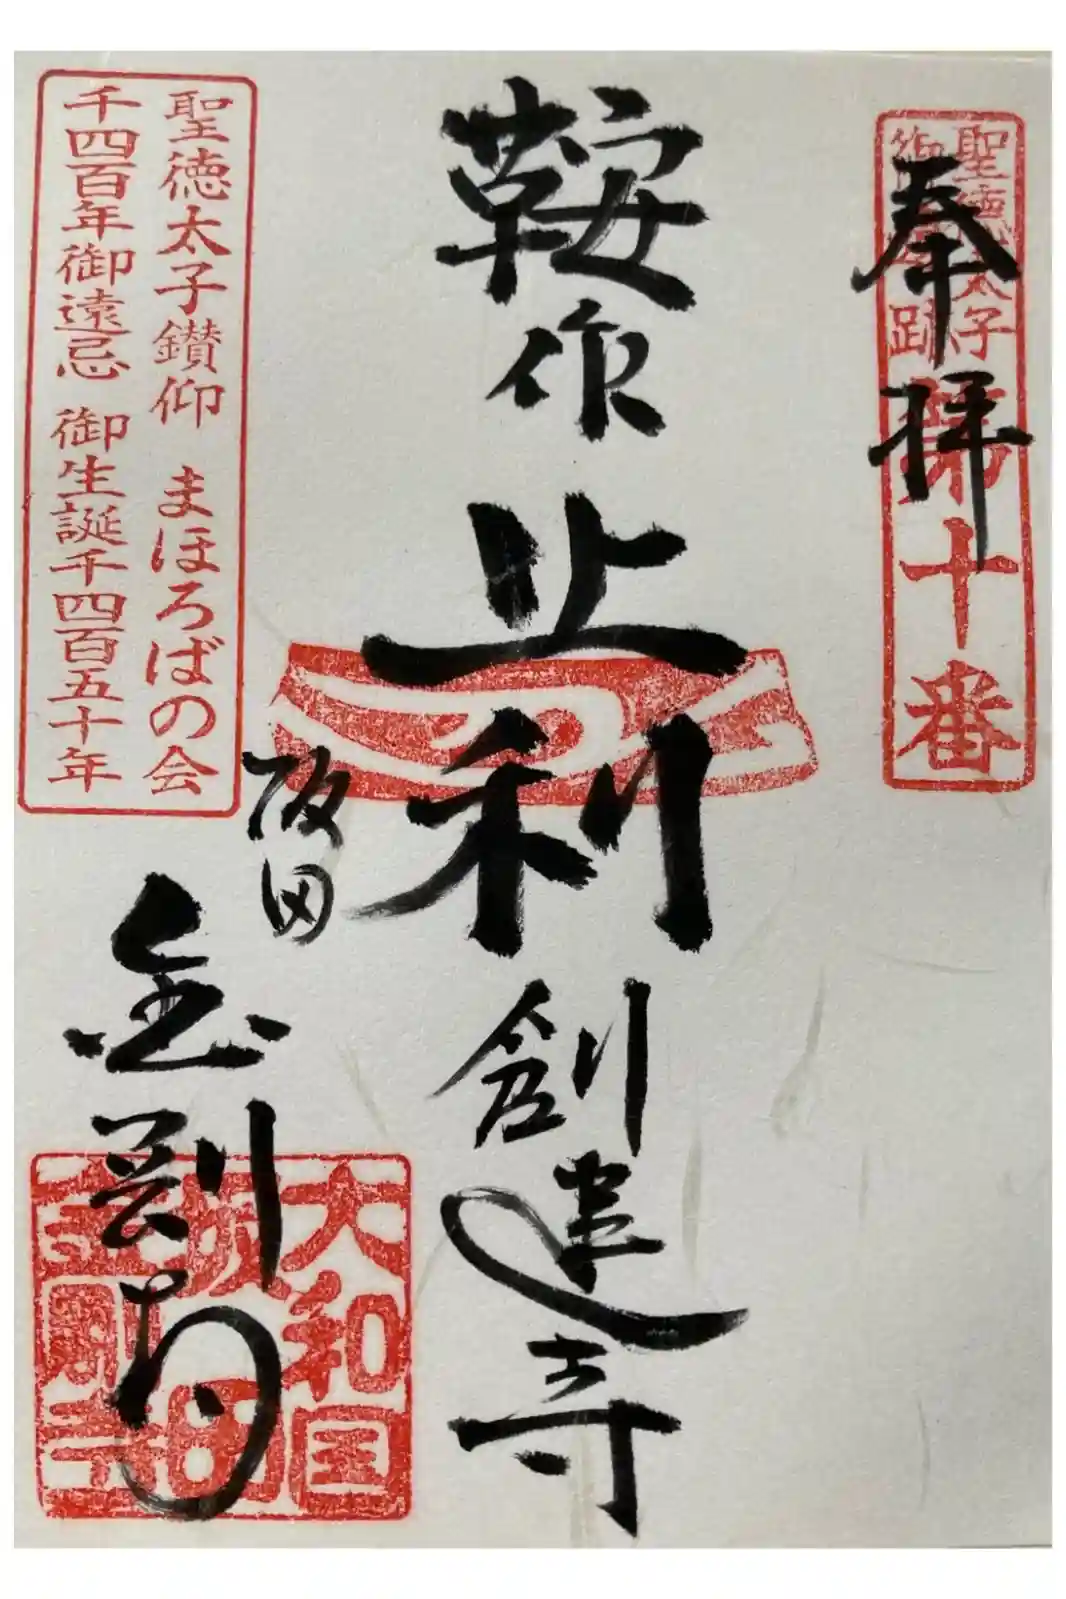 奉拝
聖徳太子
御遺跡
第十番
鞍作
止利
創建寺
阪田
金剛寺
聖徳太子鑽仰 まほろばの会
千四百年御遠忌 御生誕千四百五十年
大和国
阪田
金剛寺